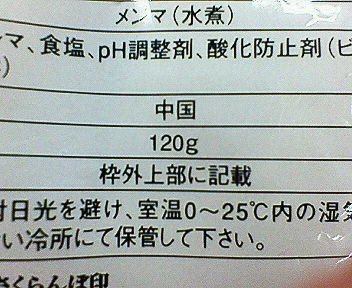 メンマ(水煮)
マ、食塩、pH調整剤、酸化防止剤(ビ
)
中国
120g
枠外上部に記載
射日光を避け、室温0~25℃内の湿気
い冷所にて保管して下さい。
さくらんぼ印